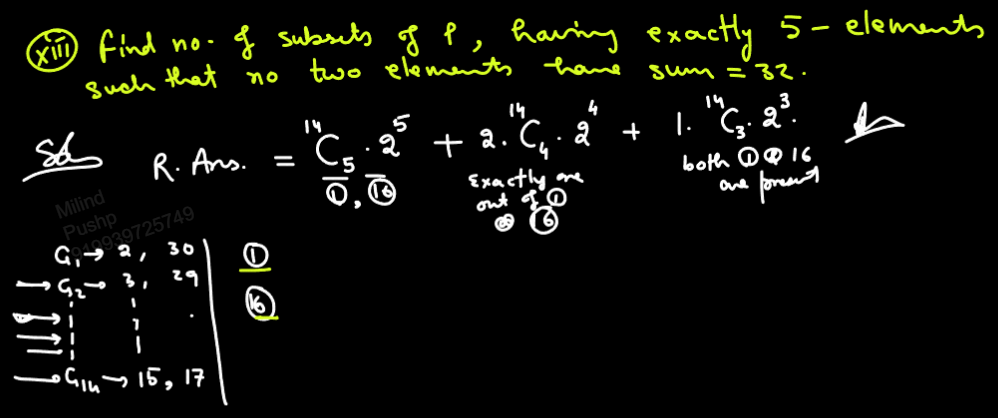 (xiii) Find no. of subsets of P, having exactly 5-elements
such that no two elements have sum = 32.
Sol
R. Ans. = ¹⁴C₅ · 2⁵ + 2 · ¹⁴C₄ · 2⁴ + 1 · ¹⁴C₃ · 2³
①, ⑯
Exactly one
out of ①
or ⑯
both ① & 16
are present
Milind
Pushp
919939725749
G₁ → 2, 30
→ G₂ → 3, 29
→ G₁₄ → 15, 17
①
⑯